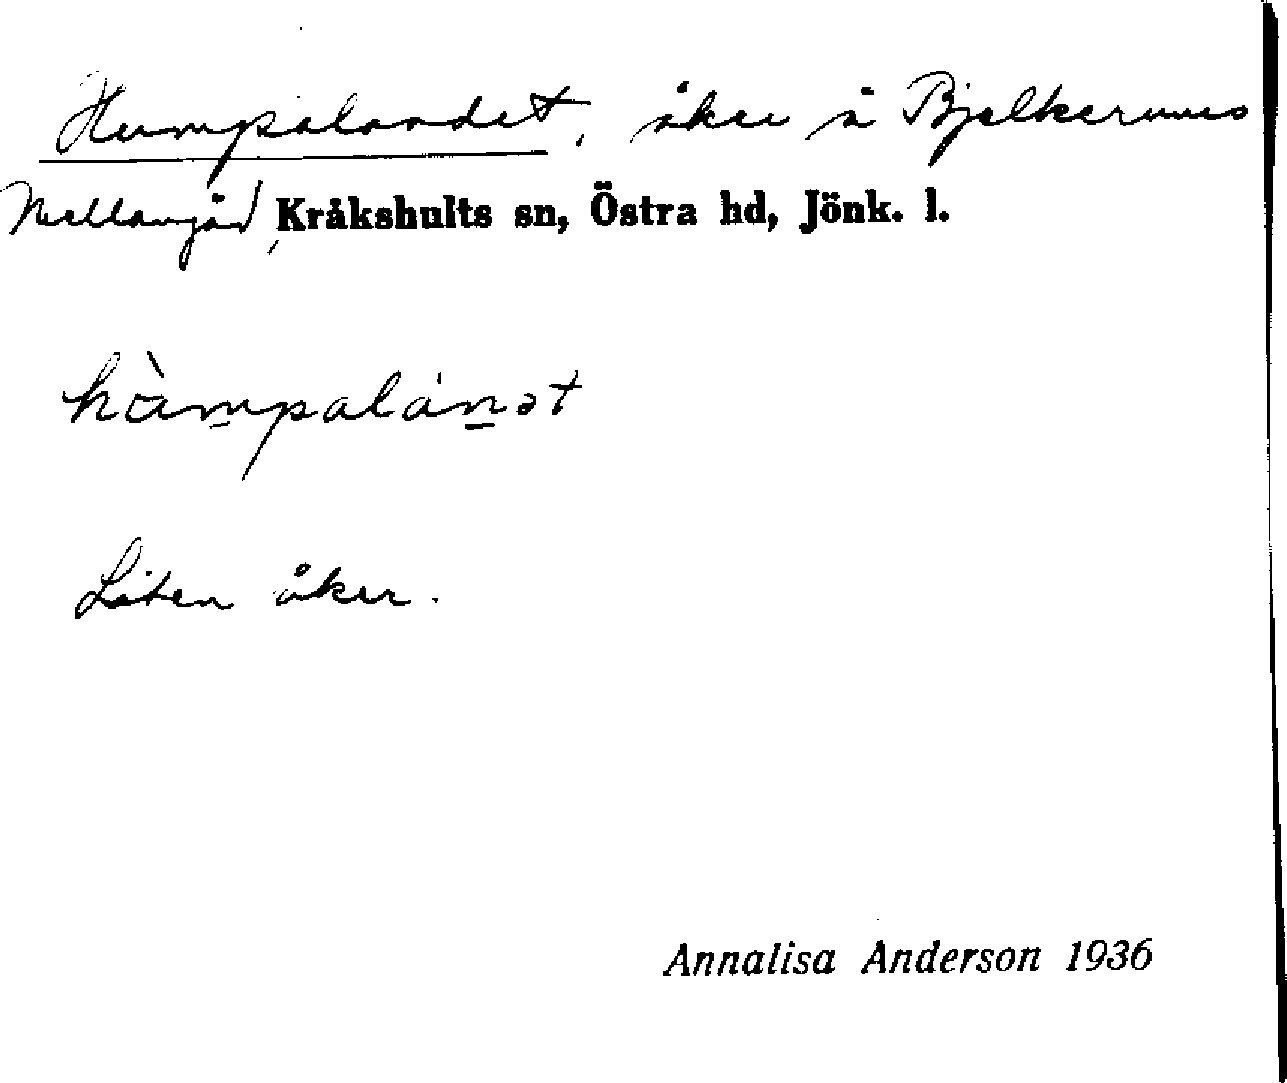 Humpalandet, åker å Bjelkerums
Mellangård, Kråkshults sn, Östra hd, Jönk. l.
hàmpalánət
Liten åker.
Annalisa Anderson 1936